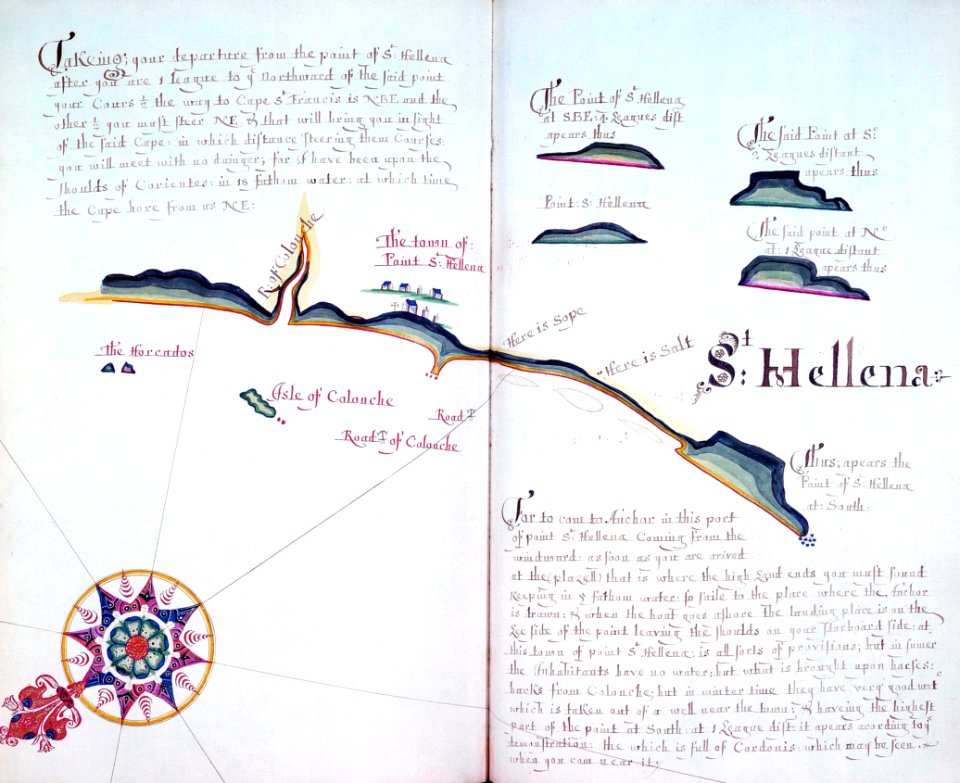 Takeing; your departure from the point of St Hellena
after you are 1 league to ye Northward of the said point
your Cours ½ the way to Cape St Francis is NBE and the
other ½ you must steer NE, & that will bring you in sight
of the said Cape: in which distance steering them Courses:
you will meet with no dainger; for I have been upon the
shoulds of Corientes: in 18 fathom water: at which time
the Cape bore from us NE:
The Point of St Hellena
at SBE: 4 Leagues dist
apears thus
The said Point at So
2 Leagues distant
apears thus
Point: St: Hellena
The said point at No
at: 1 League distant
apears thus
R. of Colonche
The town of:
Point St: Hellena
Here is Sope
Here is Salt
St: Hellena
The Horcados
Isle of Colonche
Road
Road of Colonche
Thus; apears the
Point of St: Hellena
at: South:
For to com to Anchor in this port
of point St: Hellena Coming from the
windward: as soon as you are arived
at the (plazell) that is where the high Land ends you must sound
keeping in 5 fathom water: so saile to the place, where the Anchor
is drawn: & when the boat goes ashore The landing place is on the
Lye side of the point leaving the shoulds on your starboard side: at
this town of point St Hellena; is all sorts of provisions; but in sumer
the Inhabitants have no water; but what is brought upon horses:
backs from Colonche; but in winter time they have very good watr
which is taken out of a well near the town; & haveing the highest
part of the point at South: at 1 League dist: it apears acording to ye
demonstration: the which is full of Cordonis: which may be seen
when you com near it: